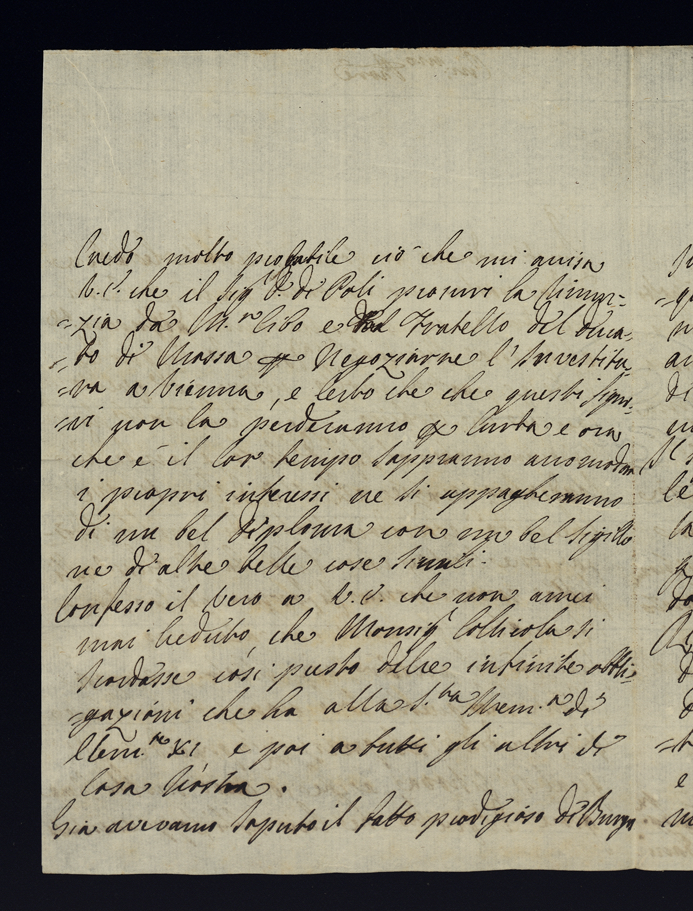 Credo molto probabile ciò che mi avvisa
V.S. che il Sig.r D. di Poli procuri la Rinun=
=zia da M.re Cibo e dal Fratello del Duca=
=to di Massa per Negoziarne l'Investitu=
=ra a Vienna, e certo che che questi Signo=
=ri non la perderanno per Curta e ora
che è il lor tempo sappranno accomodar
i propri interessi ne si appagheranno
di un bel diploma con un bel sigillo
ne di altre belle cose simili.
Confesso il vero a V.S. che non averei
mai creduto che Monsig.r Collicola si
scordasse così presto delle infinite obbli=
=gazioni che ha alla S.ta Mem.a di
Clem.te XI e poi a tutti gli altri di
Casa Nostra.
Già avevamo saputo il fatto prodigioso di